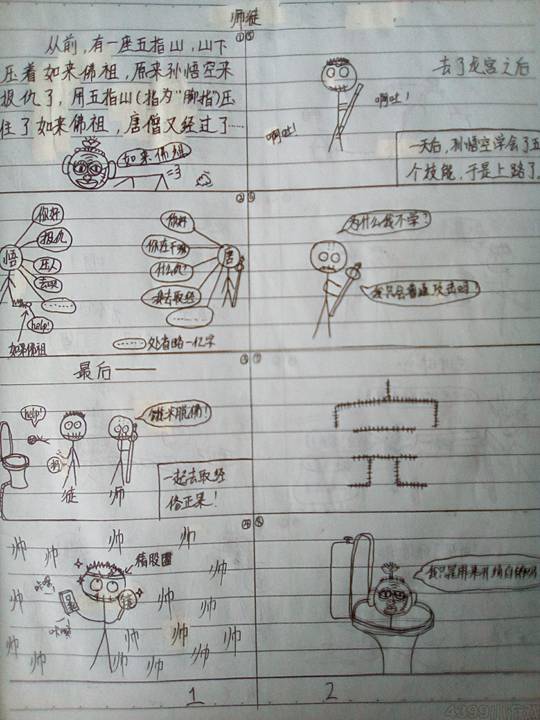 师徒
从前,有一座五指山,山下
压着如来佛祖,原来孙悟空来
报仇了,用五指山(指为"脚指")压
住了如来佛祖,唐僧又经过了……
如来佛祖
你好
报仇
压人
去取
……
悟
help!
如来佛祖
你好
你在干嘛
什么仇
我去取经
……
唐
……处省略一亿字
最后——
help!
徒
师
一起去取经
修正果!
帅 帅 帅 帅 帅
猪股圈
帅 帅 帅 帅
咔嚓
咔嚓
帅 帅 帅 帅 帅
1
去了龙宫之后
啊吐!
啊吐!
一天后,孙悟空学会了五
个技能,于是上路了。
为什么我不学?
我只会普通攻击呀
2